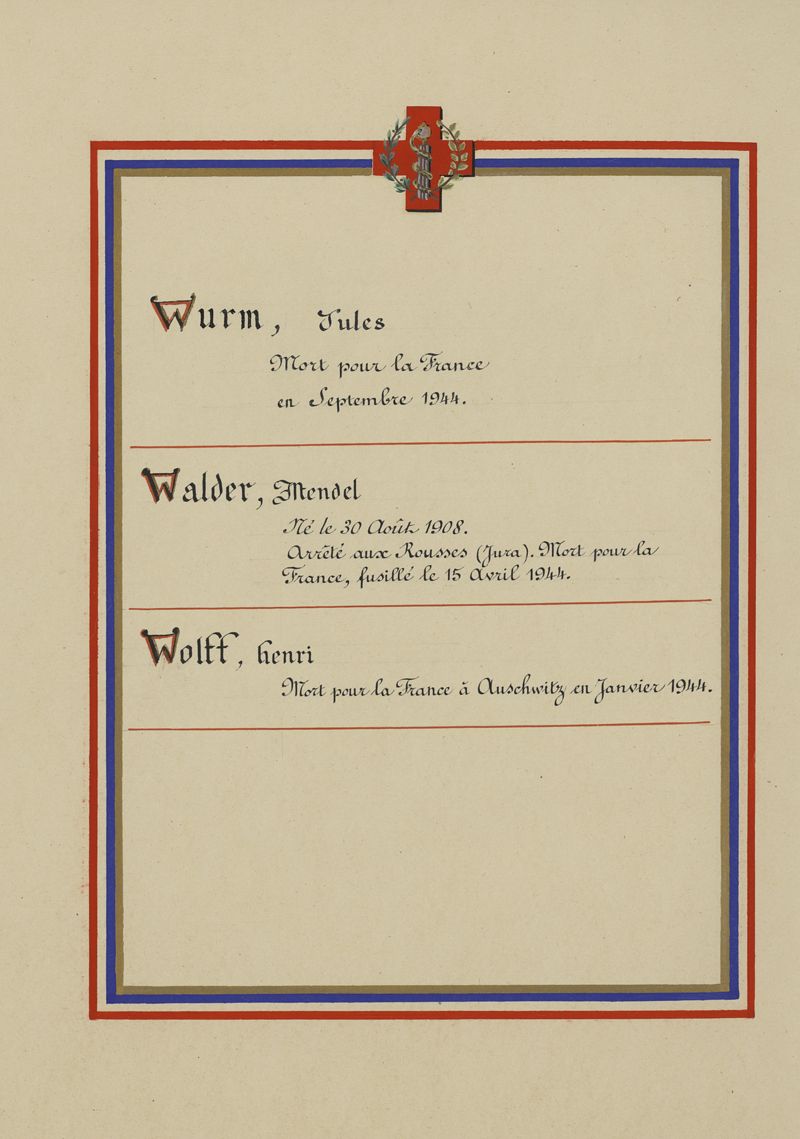 Wurm, Jules
Mort pour la France
en Septembre 1944.
Walder, Mendel
Né le 30 Août 1908.
Arrêté aux Rousses (Jura). Mort pour la
France, fusillé le 15 Avril 1944.
Wolff, Henri
Mort pour la France à Auschwitz en Janvier 1944.